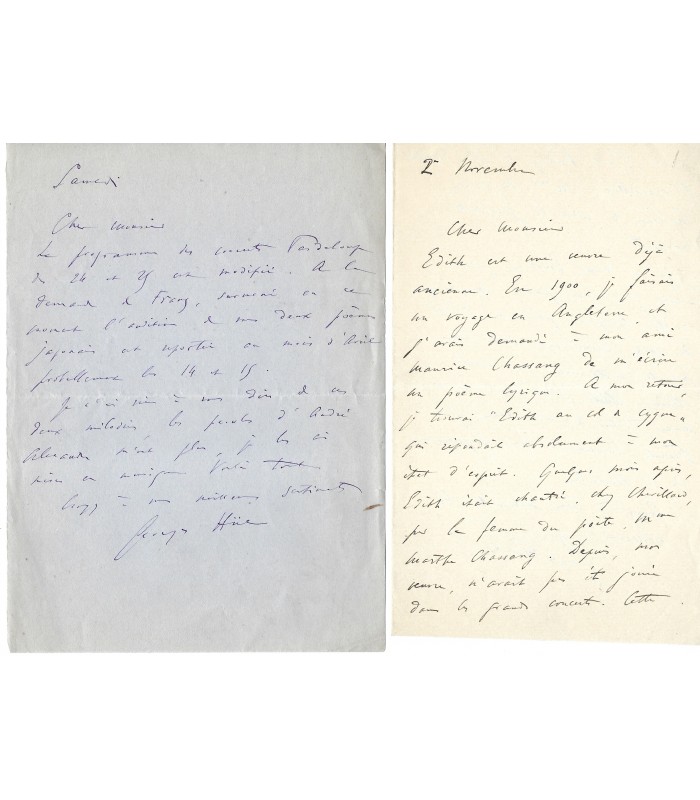 Samedi
Cher Monsieur
Le programme des concerts Pasdeloup
du 24 et 25 est modifié. A la
demande de Franz, surmené en ce
moment l'audition de mes deux poèmes
japonais est reportée au mois d'Avril
probablement les 14 et 15.
Je n'ai rien à vous dire de ces
deux mélodies, les paroles d'André
Alexandre m'ont plu, je les ai
mises en musique. Voilà tout
Croyez à mes meilleurs sentiments
Georges Hüe
2 Novembre
Cher Monsieur
Edith est une œuvre déjà
ancienne. En 1900, je faisais
un voyage en Angleterre, et
j'avais demandé à mon ami
Maurice Chassang de m'écrire
un poème lyrique. A mon retour,
je trouvai "Edith au col de cygne"
qui répondait absolument à mon
état d'esprit. Quelques mois après,
Edith était chantée, chez Chevillard,
par la femme du poète, Mme
Marthe Chassang. Depuis, mon
œuvre, n'avait pas été jouée
dans les grands concerts. Cette